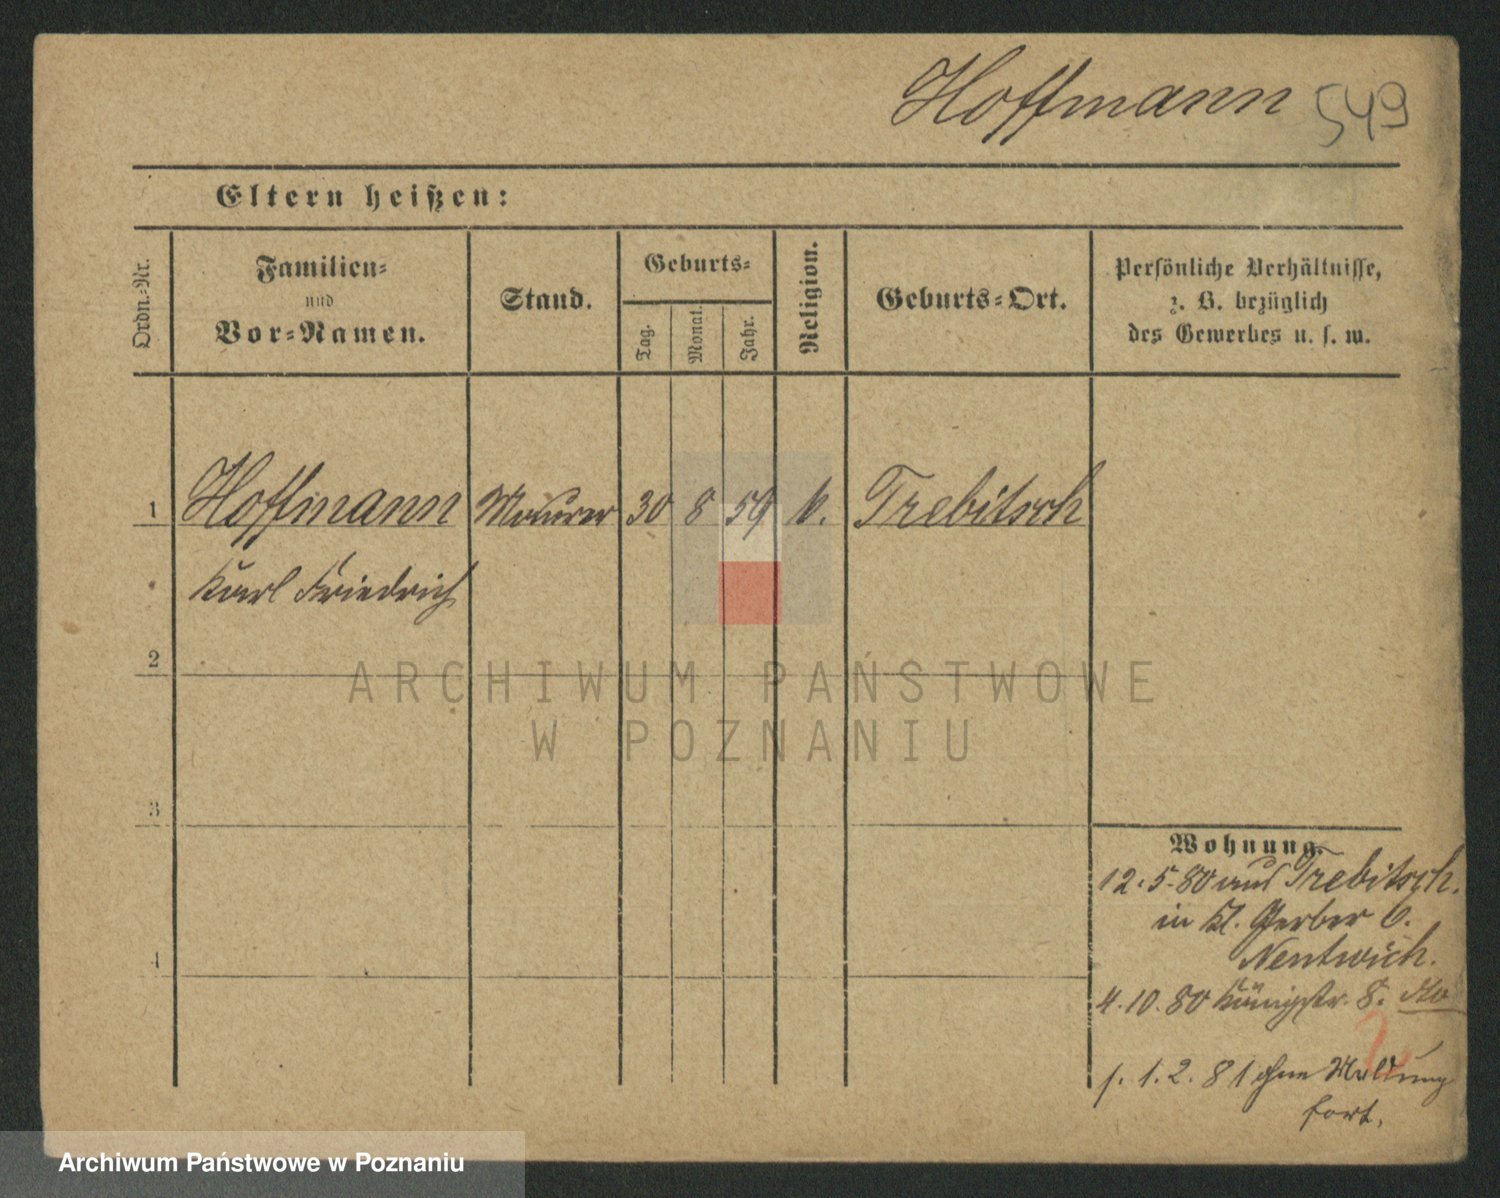 Hoffmann 549
Eltern heißen:
Ordn.-Nr.
Familien-
und
Vor-Namen.
Stand.
Geburts-
Tag.
Monat.
Jahr.
Religion.
Geburts-Ort.
Persönliche Verhältnisse,
z. B. bezüglich
des Gewerbes u. s. w.
1 Hoffmann Maurer 30 8 59 k. Trebitsch
Karl Friedrich
2
ARCHIWUM PAŃSTWOWE
W POZNANIU
3
Wohnung.
12.5.80 aus Trebitsch.
in Kl. Gerber 6.
Nentwich.
4
4.10.80 Königstr. 8.
f. 1.2.81 ohne Meldung
fort.
Archiwum Państwowe w Poznaniu